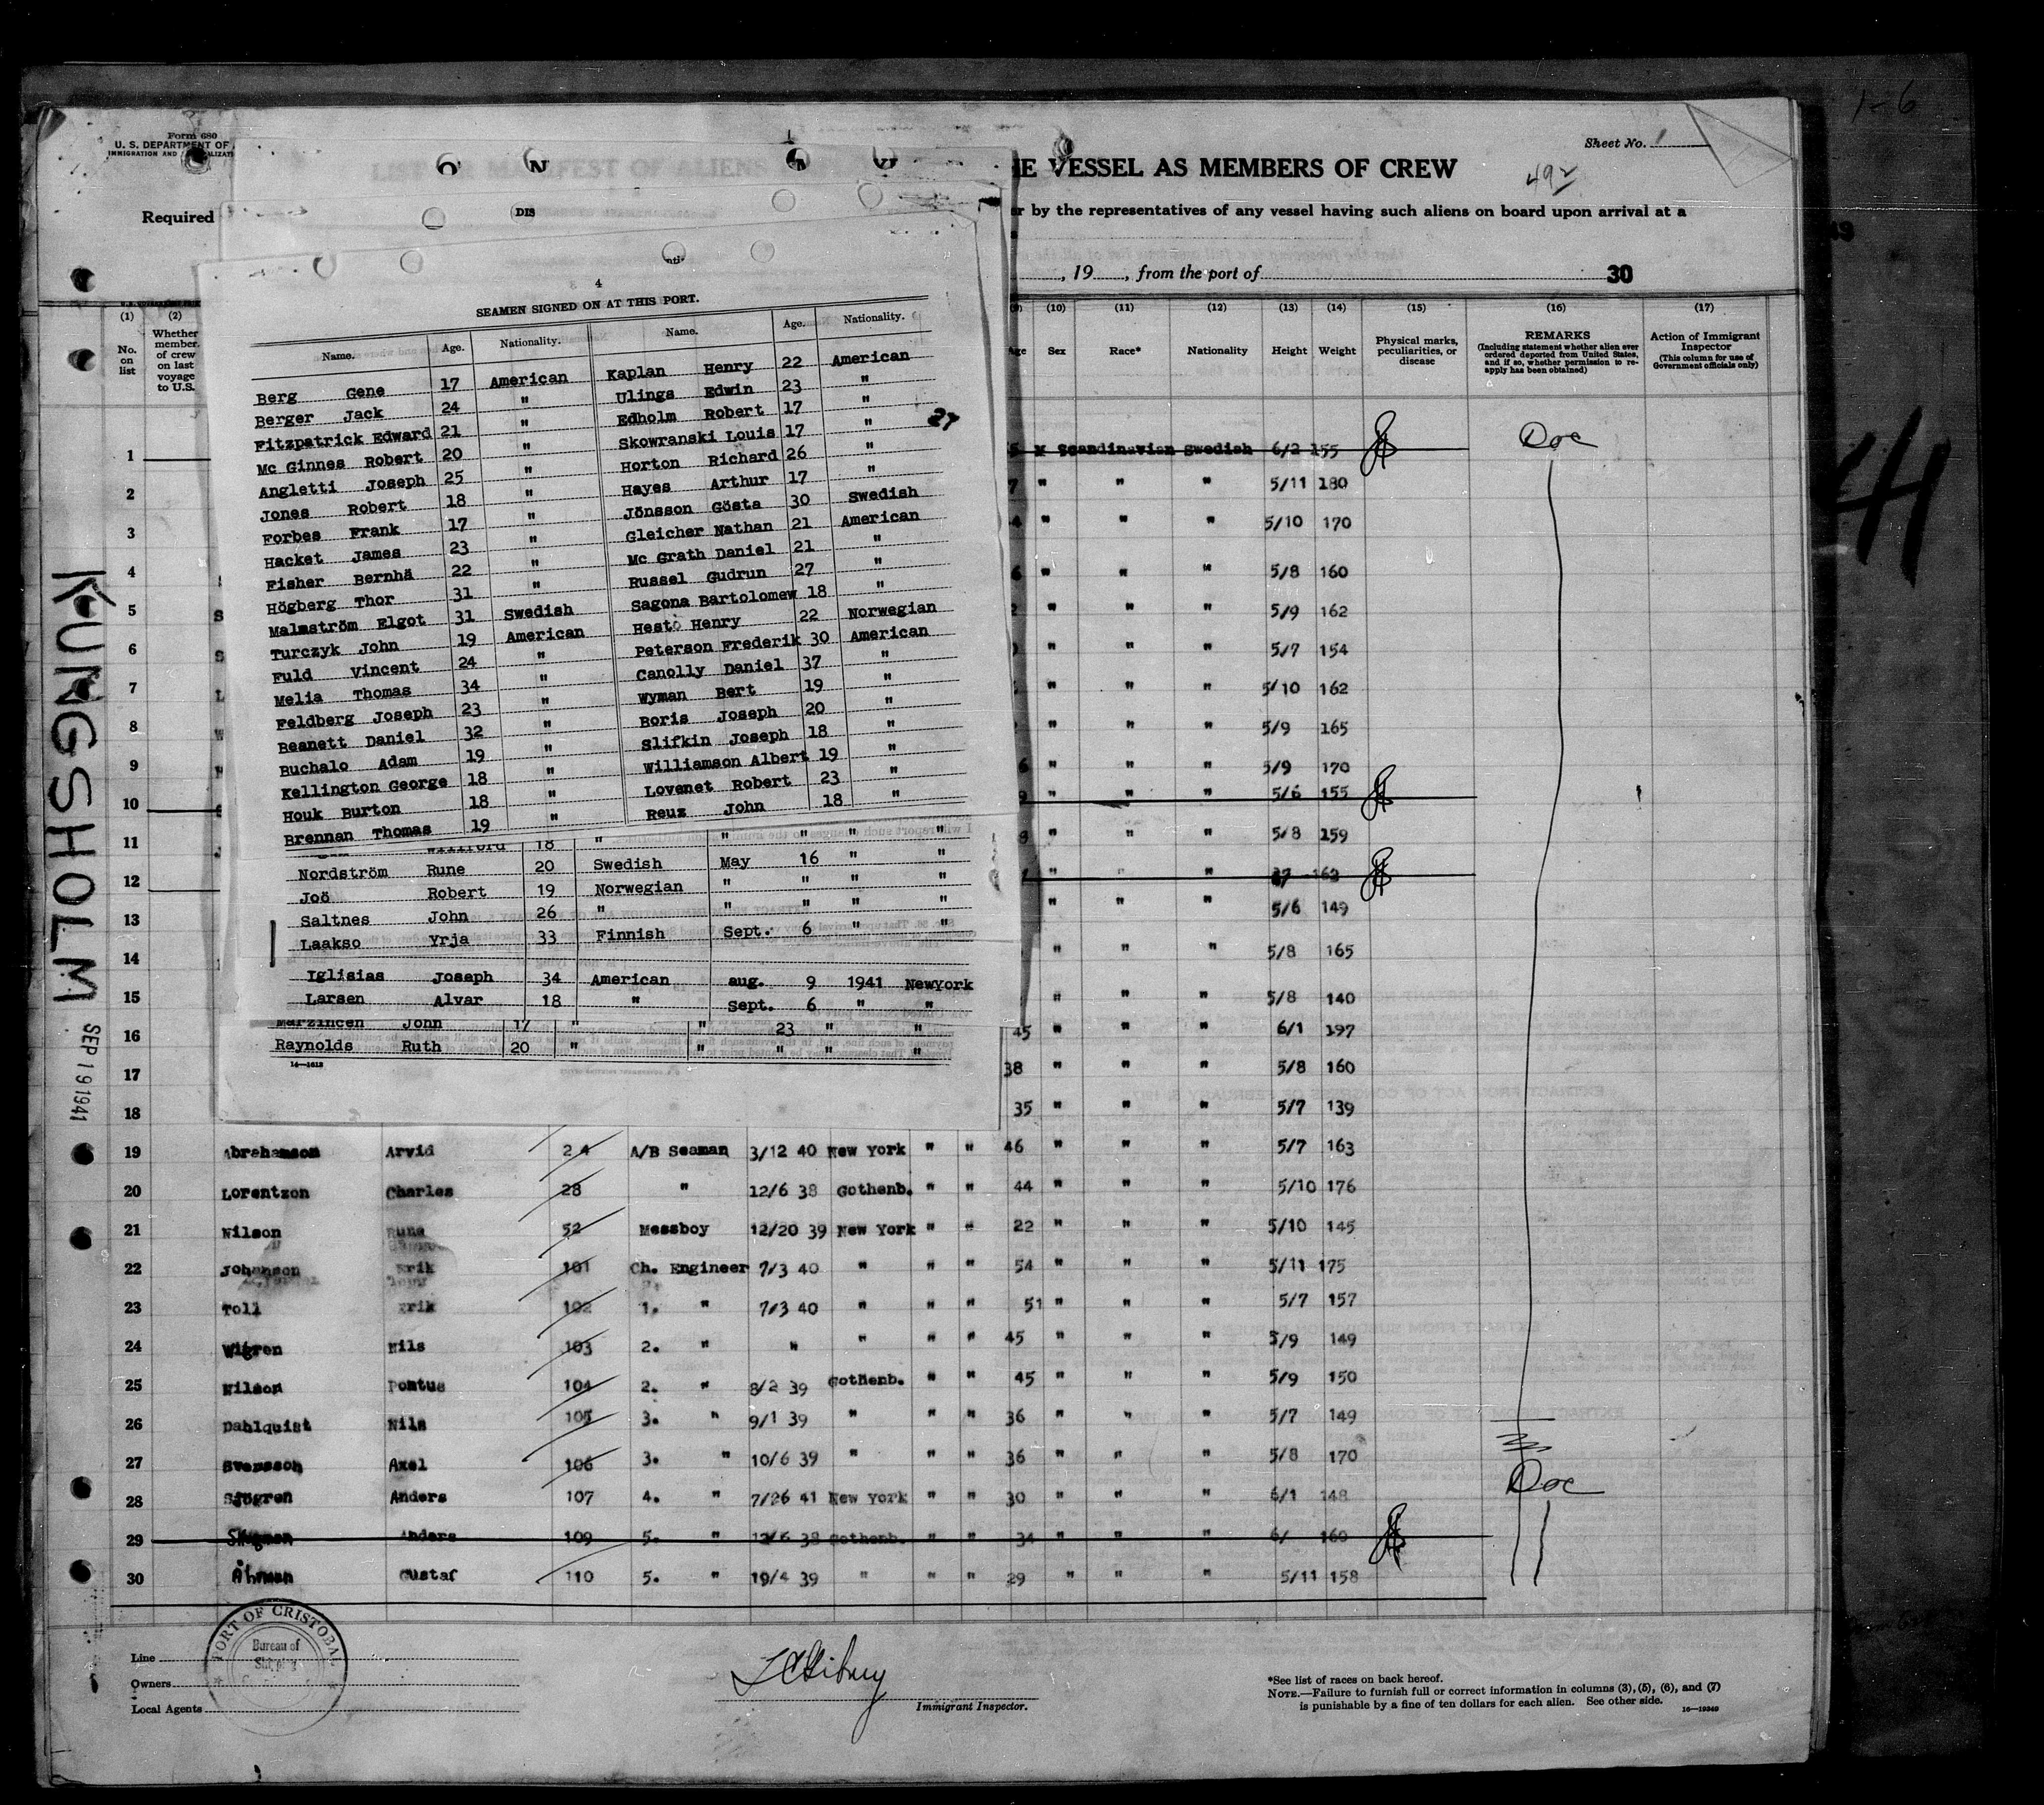 Form 680
U. S. DEPARTMENT OF
IMMIGRATION AND
Sheet No. 1
LIST OR MANIFEST OF ALIENS
HE VESSEL AS MEMBERS OF CREW
492
1-6
Required
DIS
by the representatives of any vessel having such aliens on board upon arrival at a
, 19 , from the port of 30
4
SEAMEN SIGNED ON AT THIS PORT.
Name. Age. Nationality. Name. Age. Nationality.
Berg Gene 17 American Kaplan Henry 22 American
Berger Jack 24 " Ulings Edwin 23 "
Fitzpatrick Edward 21 " Edholm Robert 17 "
Mc Ginnes Robert 20 " Skowranski Louis 17 "
Angletti Joseph 25 " Horton Richard 26 "
Jones Robert 18 " Hayes Arthur 17 "
Forbes Frank 17 " Jönsson Gösta 30 Swedish
Hacket James 23 " Gleicher Nathan 21 American
Fisher Bernhä 22 " Mc Grath Daniel 21 "
Högberg Thor 31 " Russel Gudrun 27 "
Malmström Elgot 31 Swedish Sagona Bartolomew 18 "
Turczyk John 19 American Hesto Henry 22 Norwegian
Fuld Vincent 24 " Peterson Frederik 30 American
Melia Thomas 34 " Canolly Daniel 37 "
Feldberg Joseph 23 " Wyman Bert 19 "
Beanett Daniel 32 " Boris Joseph 20 "
Buchalo Adam 19 " Slifkin Joseph 18 "
Kellington George 18 " Williamson Albert 19 "
Houk Burton 18 " Lovenet Robert 23 "
Brennan Thomas 19 " Reuz John 18 "
27
Williford 18 " " " " "
Nordström Rune 20 Swedish May 16 " "
Joö Robert 19 Norwegian " " " "
Saltnes John 26 " " " " "
Laakso Yrja 33 Finnish Sept. 6 " "
Iglisias Joseph 34 American aug. 9 1941 Newyork
Larsen Alvar 18 " Sept. 6 " "
Marzincen John 17 " " 23 " "
Raynolds Ruth 20 " " " " "
16—1612
(1) (2) (10) (11) (12) (13) (14) (15) (16) (17)
No. on list
Whether member of crew on last voyage to U.S.
Age Sex Race* Nationality Height Weight
Physical marks, peculiarities, or disease
REMARKS
(Including statement whether alien ever ordered deported from United States, and if so, whether permission to reapply has been obtained)
Action of Immigrant Inspector
(This column for use of Government officials only)
1 M Scandinavian Swedish 6/2 155 Doc
2 " " " 5/11 180
3 " " " 5/10 170
4 " " " 5/8 160
5 " " " 5/9 162
6 " " " 5/7 154
7 " " " 5/10 162
8 " " " 5/9 165
9 " " " 5/9 170
10 " " " 5/6 155
11 " " " 5/8 159
12 " " " 162
13 " " " 5/6 149
14 " " " 5/8 165
15 " " " 5/8 140
16 45 " " " 6/1 197
17 38 " " " 5/8 160
18 35 " " " 5/7 139
19 Abrahamson Arvid 24 A/B Seaman 3/12 40 New York " " 46 " " " 5/7 163
20 Lorentzon Charles 28 " 12/6 38 Gothenb. " " 44 " " " 5/10 176
21 Nilson Rune 52 Messboy 12/20 39 New York " " 22 " " " 5/10 145
22 Johanson Erik 101 Ch. Engineer 7/3 40 " " " 54 " " " 5/11 175
23 Toll Erik 102 1. " 7/3 40 " " " 51 " " " 5/7 157
24 Wigren Nils 103 2. " " " " " 45 " " " 5/9 149
25 Nilson Pontus 104 2. " 8/2 39 Gothenb. " " 45 " " " 5/9 150
26 Dahlquist Nils 105 3. " 9/1 39 " " " 36 " " " 5/7 149
27 Svensson Axel 106 3. " 10/6 39 " " " 36 " " " 5/8 170
28 Sjögren Anders 107 4. " 7/26 41 New York " " 30 " " " 6/1 148 Doc
29 Anders 109 5. " 12/6 38 Gothenb. " " 34 " " " 6/ 160
30 Åhman Gustaf 110 5. " 10/4 39 " " " 29 " " " 5/11 158
KUNGSHOLM
SEP 19 1941
41
PORT OF CRISTOBAL
Bureau of
Line
Owners
Local Agents
Immigrant Inspector.
*See list of races on back hereof.
NOTE.—Failure to furnish full or correct information in columns (3), (5), (6), and (7)
is punishable by a fine of ten dollars for each alien. See other side.
16—19349